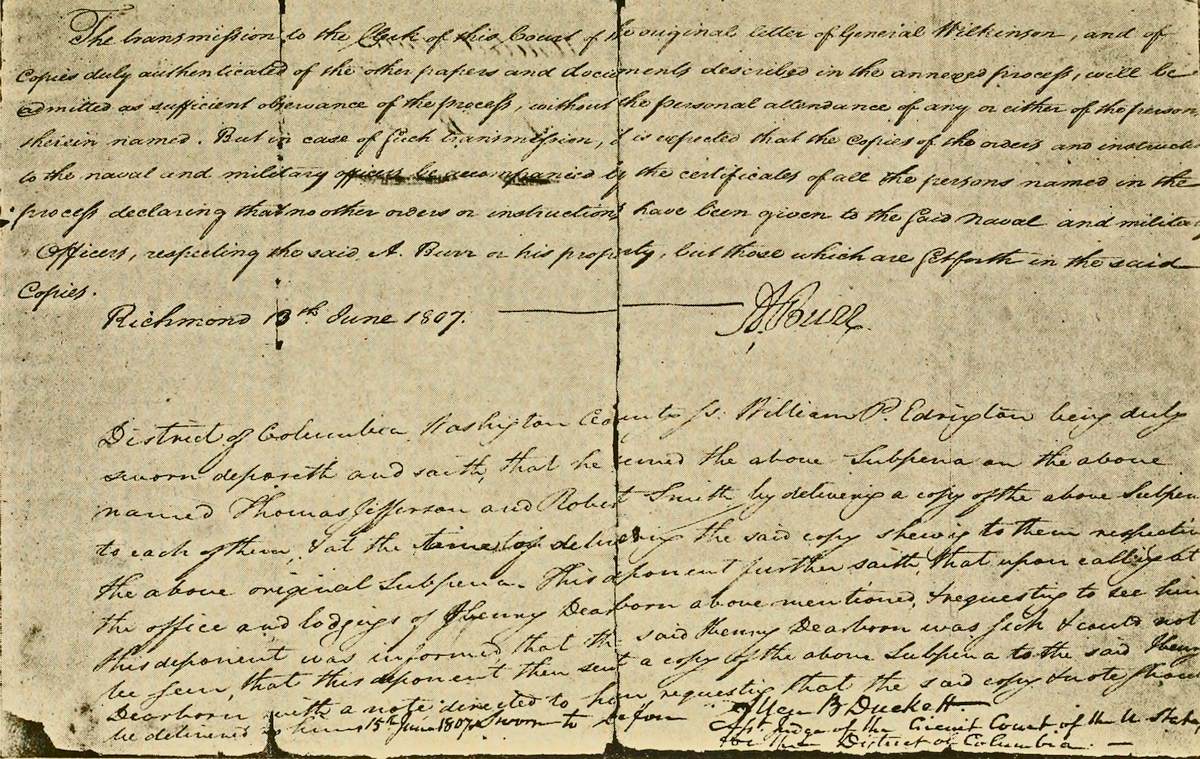 The transmission to the Clerk of this Court of the original letter of General Wilkinson, and of
Copies duly authenticated of the other papers and documents described in the annexed process, will be
admitted as sufficient observance of the process, without the personal attendance of any or either of the persons
therein named. But in case of such transmission, it is expected that the copies of the orders and instructi
to the naval and military officers be accompanied by the certificates of all the persons named in the
process declaring that no other orders or instructions have been given to the said naval and militar
Officers, respecting the said A. Burr or his property, but those which are set forth in the said
Copies.
Richmond 13th June 1807. A Burr
District of Columbia Washington County ss. William P. Edrington being duly
sworn deposeth and saith, that he served the above Subpena on the above
named Thomas Jefferson and Robert Smith by delivering a copy of the above Subpen
to each of them, & at the time of delivering the said copy shewing to them respectiv
the above original Subpena. This deponent further saith, that upon calling at
the office and lodgings of Henry Dearborn above mentioned, & requesting to see him
this deponent was informed that the said Henry Dearborn was sick & could not
be seen, that this deponent then sent a copy of the above Subpena to the said Henry
Dearborn with a note directed to him requesting that the said copy & note
be delivered to him 15th June 1807 Sworn to before
Allen B Duckett
Asst. Judge of the Circuit Court of the U. States
for the District of Columbia.